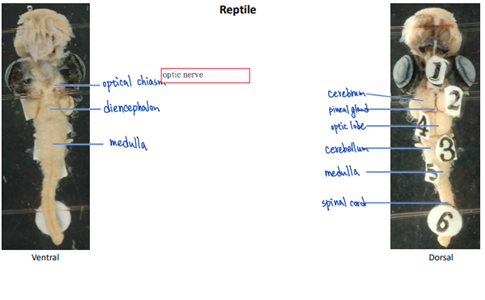 Reptile
optical chiasm
optic nerve
diencephalon
medulla
cerebrum
pineal gland
optic lobe
cerebellum
medulla
spinal cord
1
2
4
3
5
6
Ventral
Dorsal